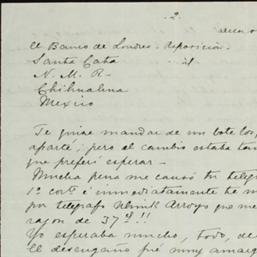 2
el Banco de Londres.
Santa Cata
N. M. R.
Chihuahua
Mexico
Te quise mandar de un bote los
aparte; pero el cambio estaba tan
que preferí esperar.
Mucha pena me causó tu teleg
é inmediatamente he m
por telégrafo Arroyo que me
razon de 37 !!
Yo esperaba mucho, todo, de
el desengaño fué muy amargo